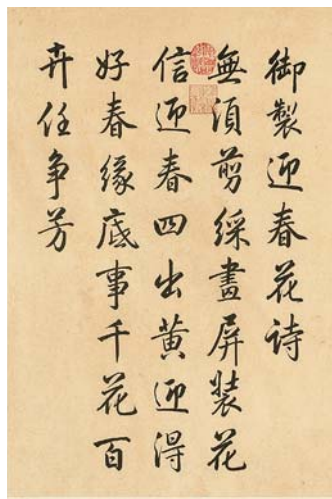 御製迎春花诗
無須剪綵畫屏裝花
信迎春四出黄迎得
好春緣底事千花百
卉任争芳